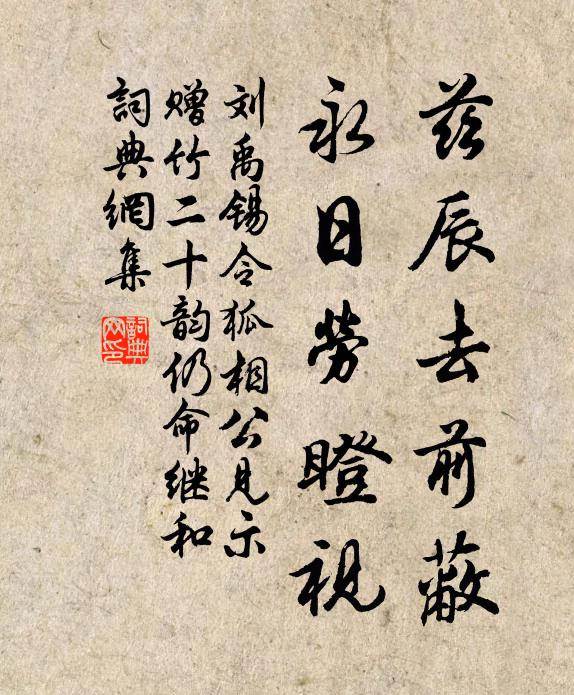 茲辰去前蔽
永日勞瞪視
刘禹锡令狐相公見示
赠竹二十韵仍命继和
詞典網集
詞典
网印